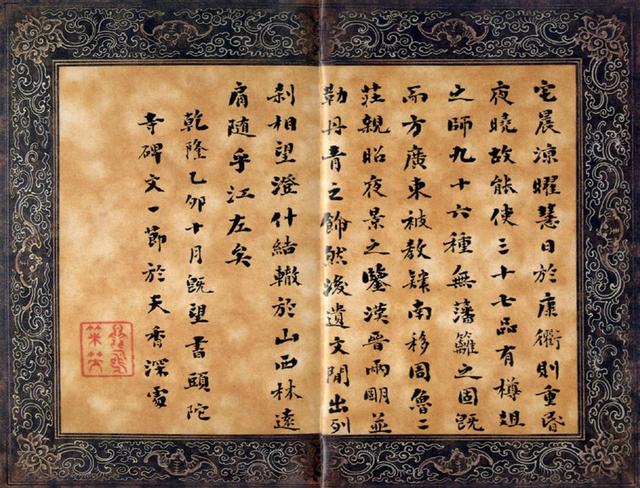 宅晨涼曜慧日於康衢則重昏
夜曉故能使三十七品有樽俎
之師九十六種無藩籬之固既
而方廣東被教肄南移周魯二
莊親昭夜景之鑒漢晉兩明並
勒丹青之飾然後遺文閒出列
剎相望澄什結轍於山西林遠
肩隨乎江左矣
乾隆乙卯十月既望書頭陀
寺碑文一節於天香深處